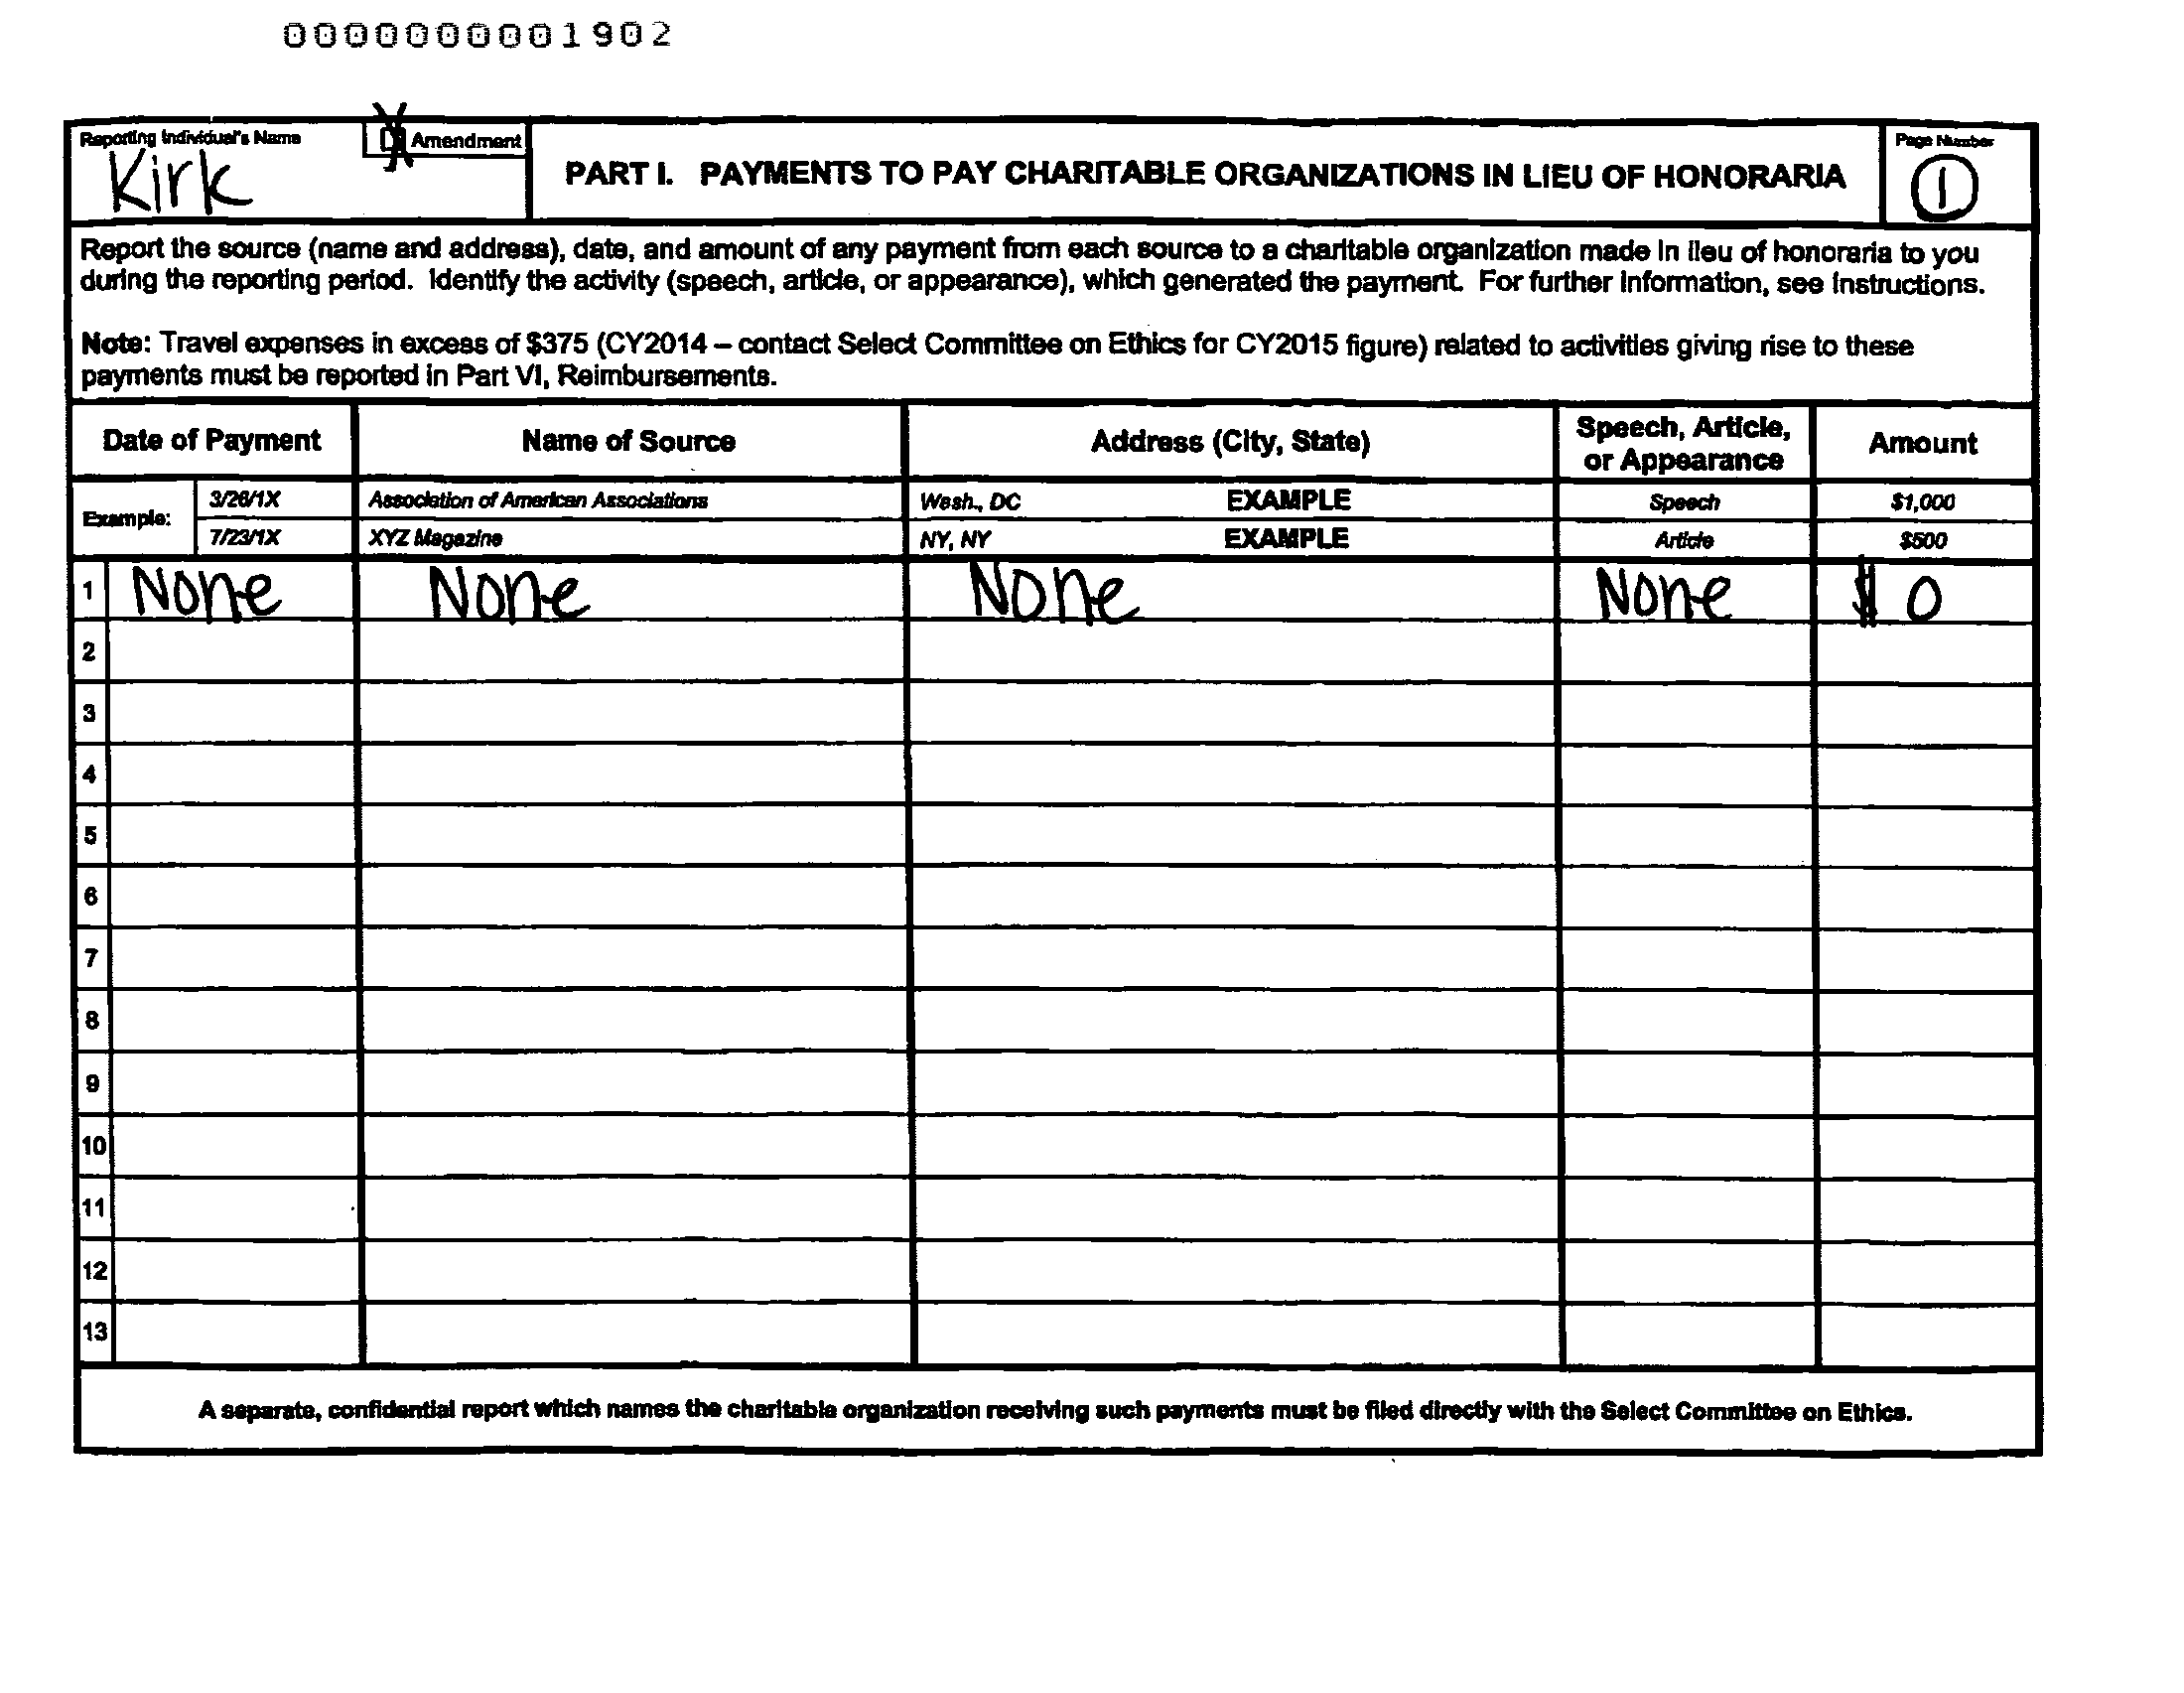 0000000001902
Reporting Individual's Name
Kirk
Amendment
PART I. PAYMENTS TO PAY CHARITABLE ORGANIZATIONS IN LIEU OF HONORARIA
Page Number
1
Report the source (name and address), date, and amount of any payment from each source to a charitable organization made in lieu of honoraria to you
during the reporting period. Identify the activity (speech, article, or appearance), which generated the payment. For further information, see Instructions.
Note: Travel expenses in excess of $375 (CY2014 – contact Select Committee on Ethics for CY2015 figure) related to activities giving rise to these
payments must be reported in Part VI, Reimbursements.
Date of Payment Name of Source Address (City, State) Speech, Article, or Appearance Amount
Example: 3/26/1X Association of American Associations Wash., DC EXAMPLE Speech $1,000
7/23/1X XYZ Magazine NY, NY EXAMPLE Article $500
1 None None None None $ 0
2
3
4
5
6
7
8
9
10
11
12
13
A separate, confidential report which names the charitable organization receiving such payments must be filed directly with the Select Committee on Ethics.